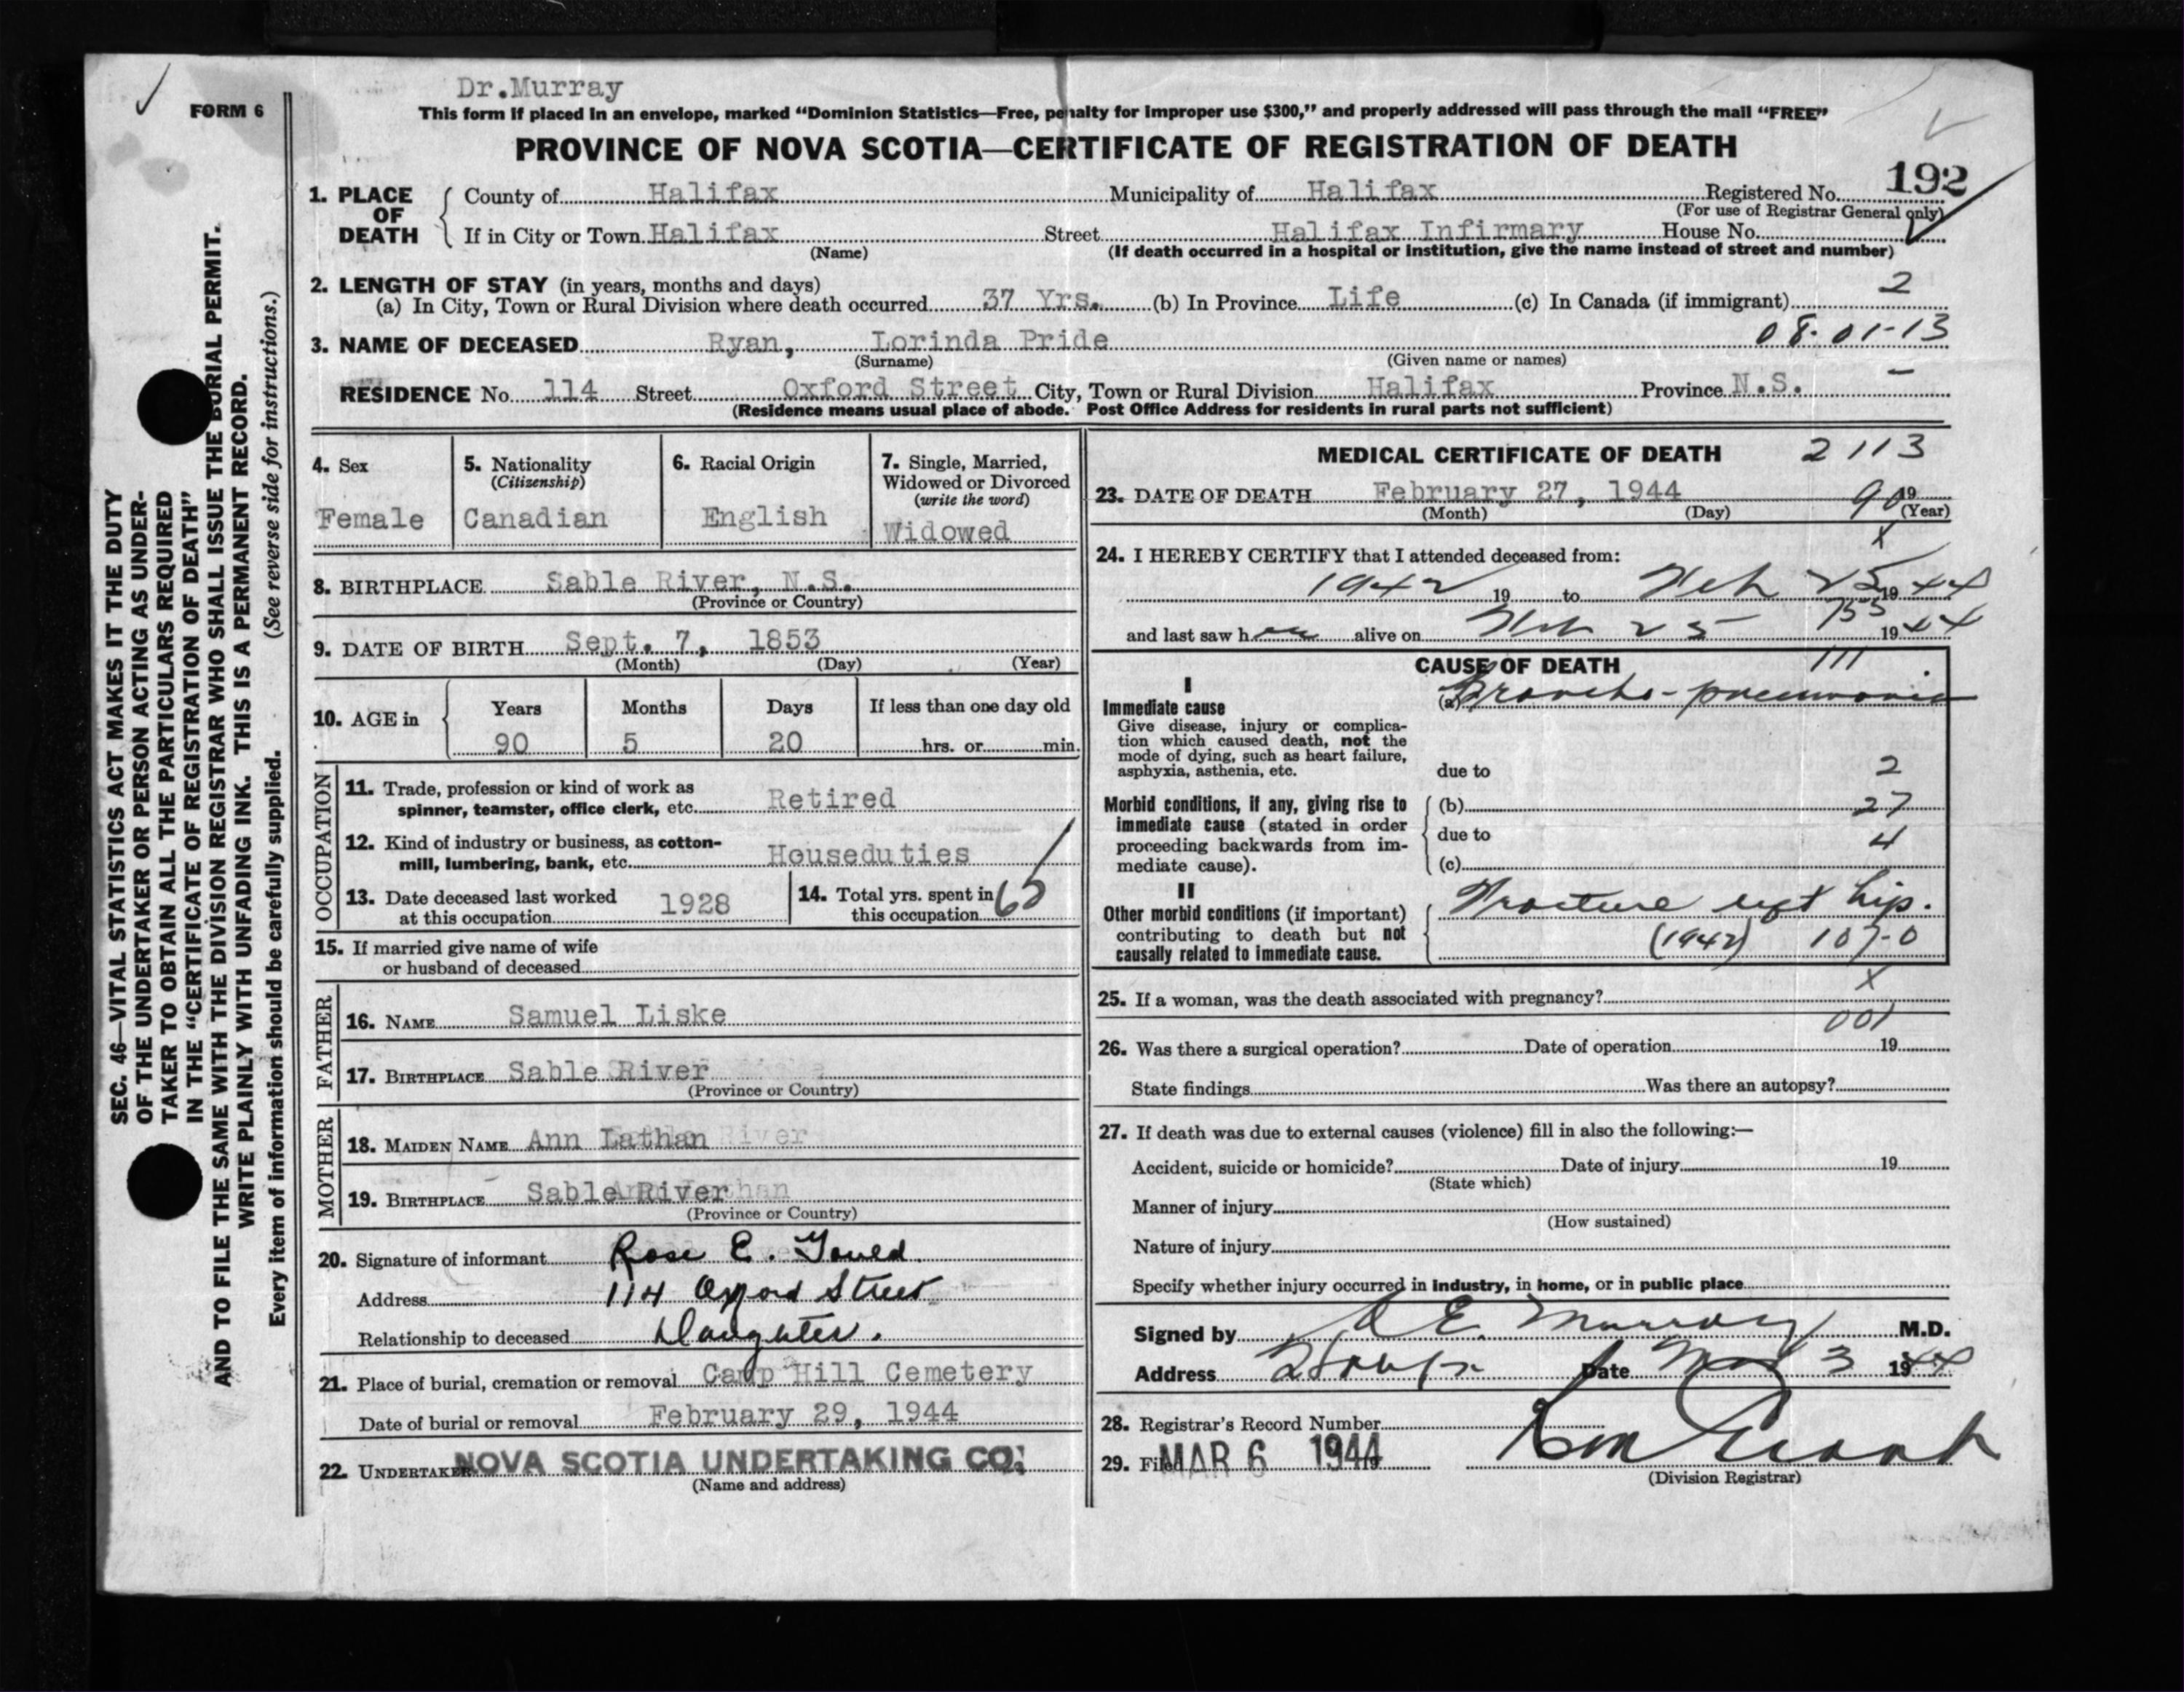 Dr.Murray
FORM 6
This form if placed in an envelope, marked "Dominion Statistics—Free, penalty for improper use $300," and properly addressed will pass through the mail "FREE"
PROVINCE OF NOVA SCOTIA—CERTIFICATE OF REGISTRATION OF DEATH
192
1. PLACE OF DEATH
County of Halifax Municipality of Halifax Registered No.
(For use of Registrar General only)
If in City or Town Halifax Street Halifax Infirmary House No.
(Name) (If death occurred in a hospital or institution, give the name instead of street and number)
2. LENGTH OF STAY (in years, months and days) 2
(a) In City, Town or Rural Division where death occurred 37 Yrs. (b) In Province Life (c) In Canada (if immigrant)
3. NAME OF DECEASED Ryan, Lorinda Pride 08-01-13
(Surname) (Given name or names)
RESIDENCE No. 114 Street Oxford Street City, Town or Rural Division Halifax Province N.S.
(Residence means usual place of abode. Post Office Address for residents in rural parts not sufficient)
4. Sex
Female
5. Nationality
(Citizenship)
Canadian
6. Racial Origin
English
7. Single, Married,
Widowed or Divorced
(write the word)
Widowed
8. BIRTHPLACE Sable River, N.S.
(Province or Country)
9. DATE OF BIRTH Sept. 7, 1853
(Month) (Day) (Year)
10. AGE in
Years Months Days If less than one day old
90 5 20 hrs. or min.
OCCUPATION
11. Trade, profession or kind of work as
spinner, teamster, office clerk, etc. Retired
12. Kind of industry or business, as cotton-
mill, lumbering, bank, etc. Houseduties
13. Date deceased last worked
at this occupation 1928
14. Total yrs. spent in
this occupation 60
15. If married give name of wife
or husband of deceased
FATHER
16. NAME Samuel Liske
17. BIRTHPLACE Sable River
(Province or Country)
MOTHER
18. MAIDEN NAME Ann Lathan
19. BIRTHPLACE Sable River
(Province or Country)
20. Signature of informant Rose E.
Address 114 Oxford Street
Relationship to deceased Daughter.
21. Place of burial, cremation or removal Camp Hill Cemetery
Date of burial or removal February 29, 1944
22. UNDERTAKER NOVA SCOTIA UNDERTAKING CO.
(Name and address)
MEDICAL CERTIFICATE OF DEATH 2113
23. DATE OF DEATH February 27, 1944 90 19
(Month) (Day) (Year)
X
24. I HEREBY CERTIFY that I attended deceased from:
1942 19 to Feb 25 19 44
and last saw her alive on Feb 25 19 44
CAUSE OF DEATH 111
I
Immediate cause
Give disease, injury or complica-
tion which caused death, not the
mode of dying, such as heart failure,
asphyxia, asthenia, etc.
(a) Broncho-pneumonia
due to 2
Morbid conditions, if any, giving rise to
immediate cause (stated in order
proceeding backwards from im-
mediate cause).
(b) 27
due to 4
(c)
II
Other morbid conditions (if important)
contributing to death but not
causally related to immediate cause.
Fracture left hip.
(1942) 107-0
X
25. If a woman, was the death associated with pregnancy?
001
26. Was there a surgical operation? Date of operation 19
State findings Was there an autopsy?
27. If death was due to external causes (violence) fill in also the following:—
Accident, suicide or homicide? Date of injury 19
(State which)
Manner of injury
(How sustained)
Nature of injury
Specify whether injury occurred in industry, in home, or in public place
Signed by E. Murray M.D.
Address Date Mar 3 1944
28. Registrar's Record Number
29. Filed MAR 6 1944
(Division Registrar)
SEC. 46—VITAL STATISTICS ACT MAKES IT THE DUTY
OF THE UNDERTAKER OR PERSON ACTING AS UNDER-
TAKER TO OBTAIN ALL THE PARTICULARS REQUIRED
IN THE "CERTIFICATE OF REGISTRATION OF DEATH"
AND TO FILE THE SAME WITH THE DIVISION REGISTRAR WHO SHALL ISSUE THE BURIAL PERMIT.
WRITE PLAINLY WITH UNFADING INK. THIS IS A PERMANENT RECORD.
Every item of information should be carefully supplied. (See reverse side for instructions.)